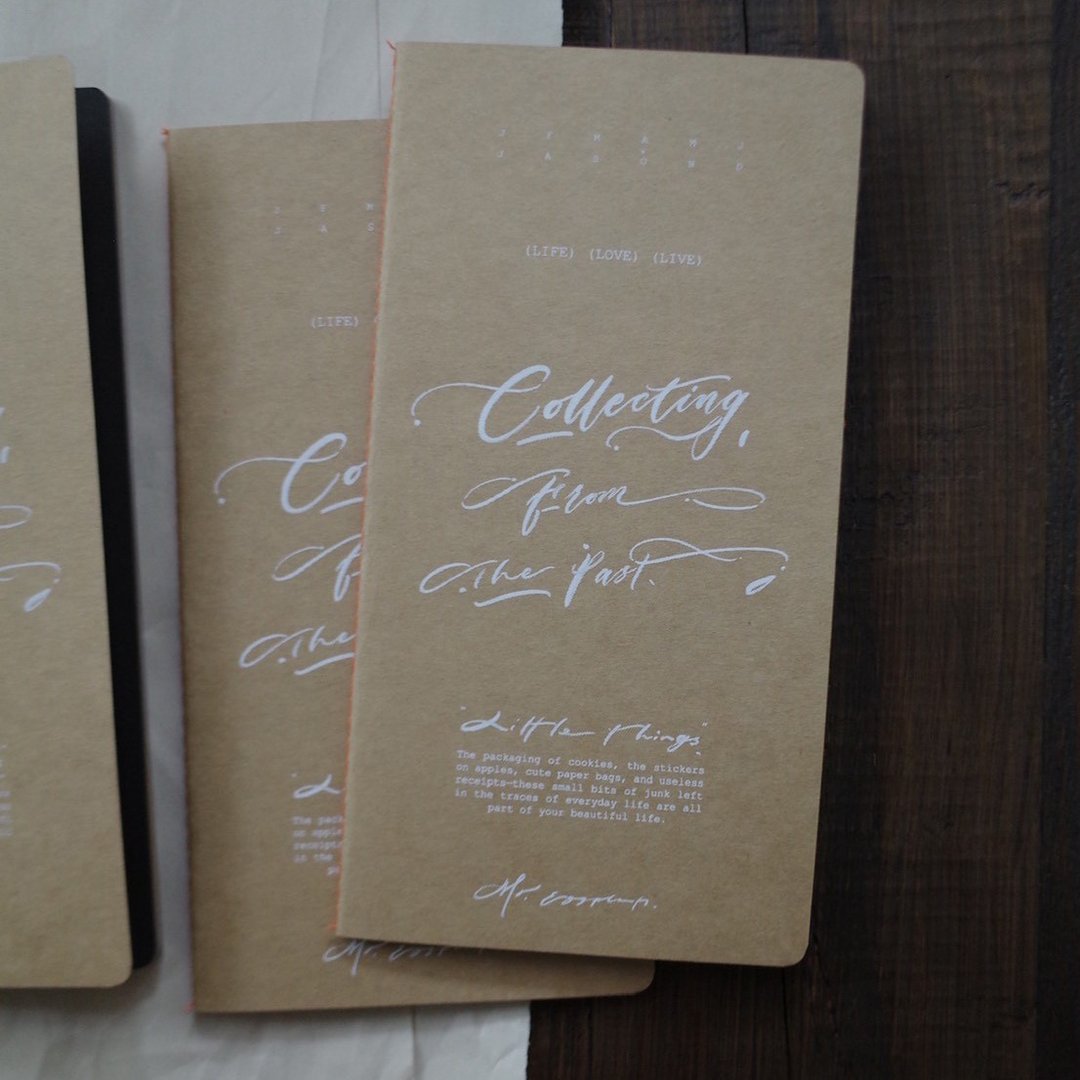 J F M A M J
J A S O N D
(LIFE) (LOVE) (LIVE)
Collecting,
From
The Past.
"Little things"
The packaging of cookies, the stickers
on apples, cute paper bags, and useless
receipts—these small bits of junk left
in the traces of everyday life are all
part of your beautiful life.
Mr.
J F M
J A S
(LIFE)
Co
F
The
"L
The pack
on apple
receipts
in the
Mr.